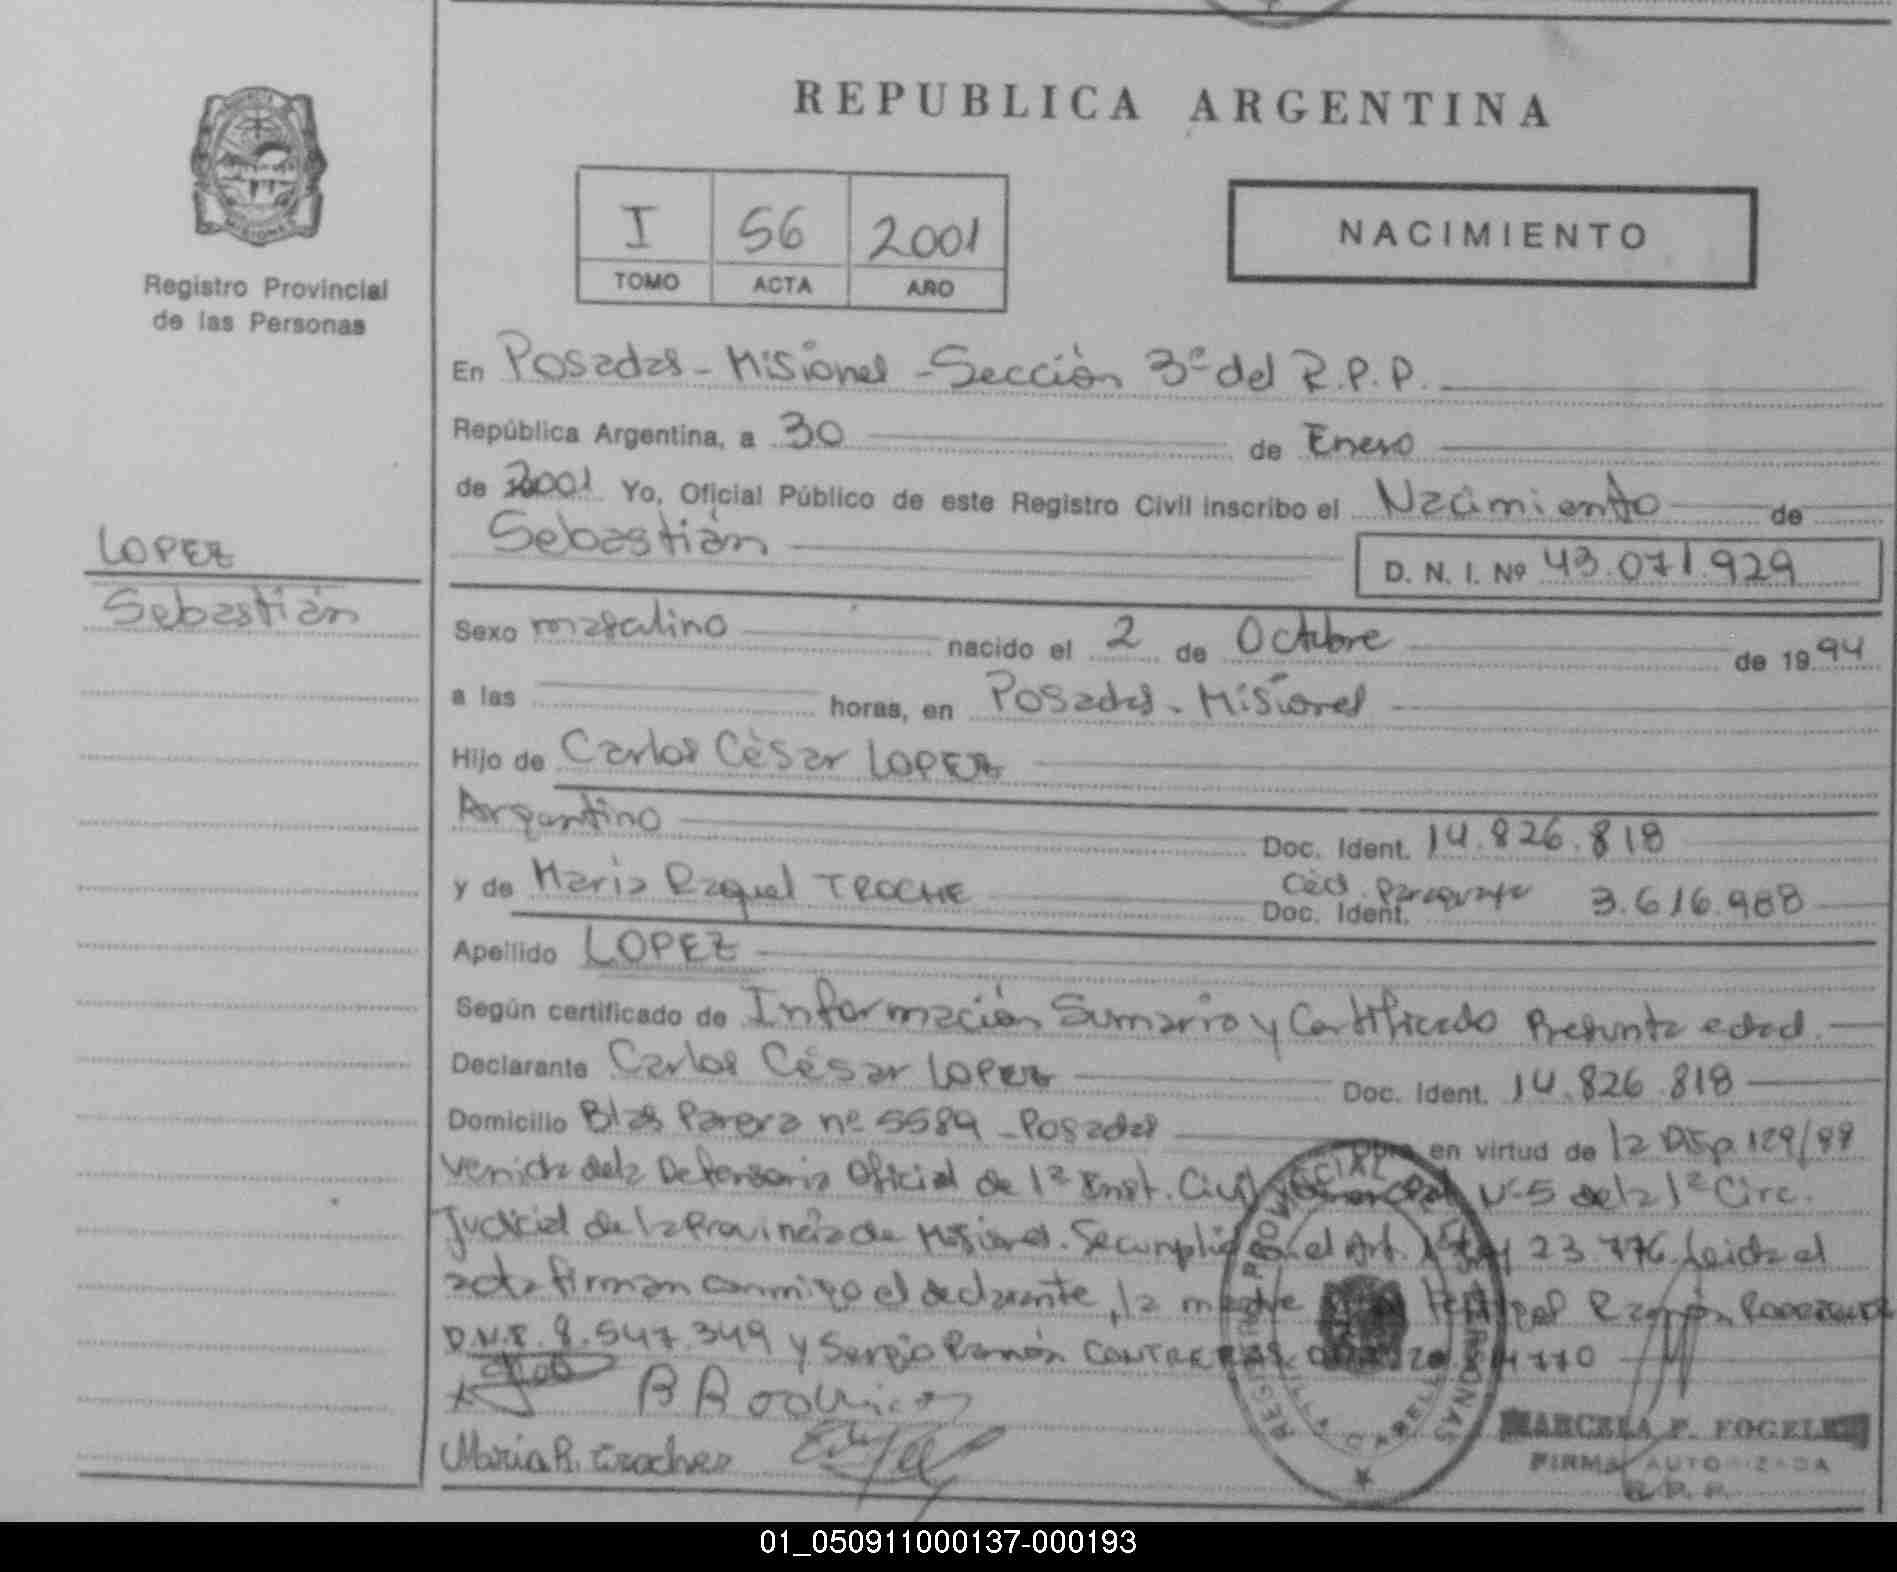 REPUBLICA ARGENTINA
I 56 2001
TOMO ACTA AÑO
NACIMIENTO
MISIONES
Registro Provincial
de las Personas
LOPEZ
Sebastián
En Posadas - Misiones - Sección 3ª del R.P.P.
República Argentina, a 30 de Enero
de 2001 Yo, Oficial Público de este Registro Civil inscribo el Nacimiento de
Sebastián
D. N. I. Nº 43.071.929
Sexo masculino nacido el 2 de Octubre de 1994
a las horas, en Posadas - Misiones
Hijo de Carlos César LOPEZ
Argentino Doc. Ident. 14.826.818
y de María Raquel TROCHE Céd. Paraguaya Doc. Ident. 3.616.988
Apellido LOPEZ
Según certificado de Información Sumario y Certificado Presunta edad.
Declarante Carlos César LOPEZ Doc. Ident. 14.826.818
Domicilio Blas Parera nº 5589 - Posadas Obra en virtud de la Disp 129/99
venida dela Defensoría Oficial de 1ª Inst. Civil Nº 5 dela 1ª Circ.
Judicial de la Provincia de Misiones. Se cumplió el Art. Ley 23.776. Leída el
acta firman conmigo el declarante, la madre Ramón RODRIGUEZ
D.N.I. 8.547.349 y Sergio Ramón CONTRERAS
María R. Troche
REGISTRO PROVINCIAL DE LAS PERSONAS
MARCELA F. FOGELER
FIRMA AUTORIZADA
R. P. P.
01_050911000137-000193